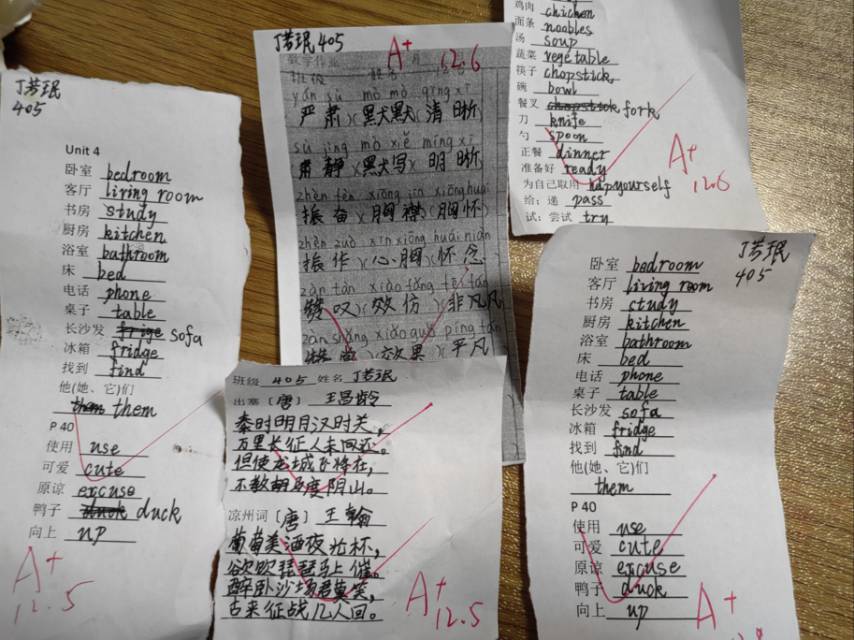 丁芳珉
405
Unit 4
卧室 bedroom
客厅 living room
书房 study
厨房 kitchen
浴室 bathroom
床 bed
电话 phone
桌子 table
长沙发 sofa
冰箱 fridge
找到 find
他(她、它)们
them them
P 40
使用 use
可爱 cute
原谅 excuse
鸭子 duck
向上 up
A+
12.5
丁芳珉 405
A+ 12.6
数学作业 月
班级 姓名
yán sù mò mò qīng xī
严肃)(默默)(清晰
sù jìng mò xiě míng xī
肃静)(默写)(明晰
zhèn fèn xiōng jīn xiōng huái
振奋)(胸襟)(胸怀
zhèn zuò xīn xiōng huái niàn
振作)(心胸)(怀念
zàn tàn xiào fǎng fēi fán
赞叹)(效仿)(非凡
zàn shǎng xiào guǒ píng fán
效果)(平凡
班级 405 姓名 丁芳珉
出塞〔唐〕 王昌龄
秦时明月汉时关,
万里长征人未回还。
但使龙城飞将在,
不教胡马度阴山。
凉州词〔唐〕 王翰
葡萄美酒夜光杯,
欲饮琵琶马上催。
醉卧沙场君莫笑,
古来征战几人回。
A+
12.5
鸡肉 chichen
面条 noobles
汤 soup
蔬菜 vegetable
筷子 chopstick
碗 bowl
餐叉 chopstick fork
刀 knife
勺 spoon
正餐 dinner
准备好 ready
为自己取用 helpyourself
给;递 pass
试;尝试 try
A+
12.6
丁芳珉
405
卧室 bedroom
客厅 living room
书房 study
厨房 kitchen
浴室 bathroom
床 bed
电话 phone
桌子 table
长沙发 sofa
冰箱 fridge
找到 find
他(她、它)们
them
P 40
使用 use
可爱 cute
原谅 excuse
鸭子 duck
向上 up
A+